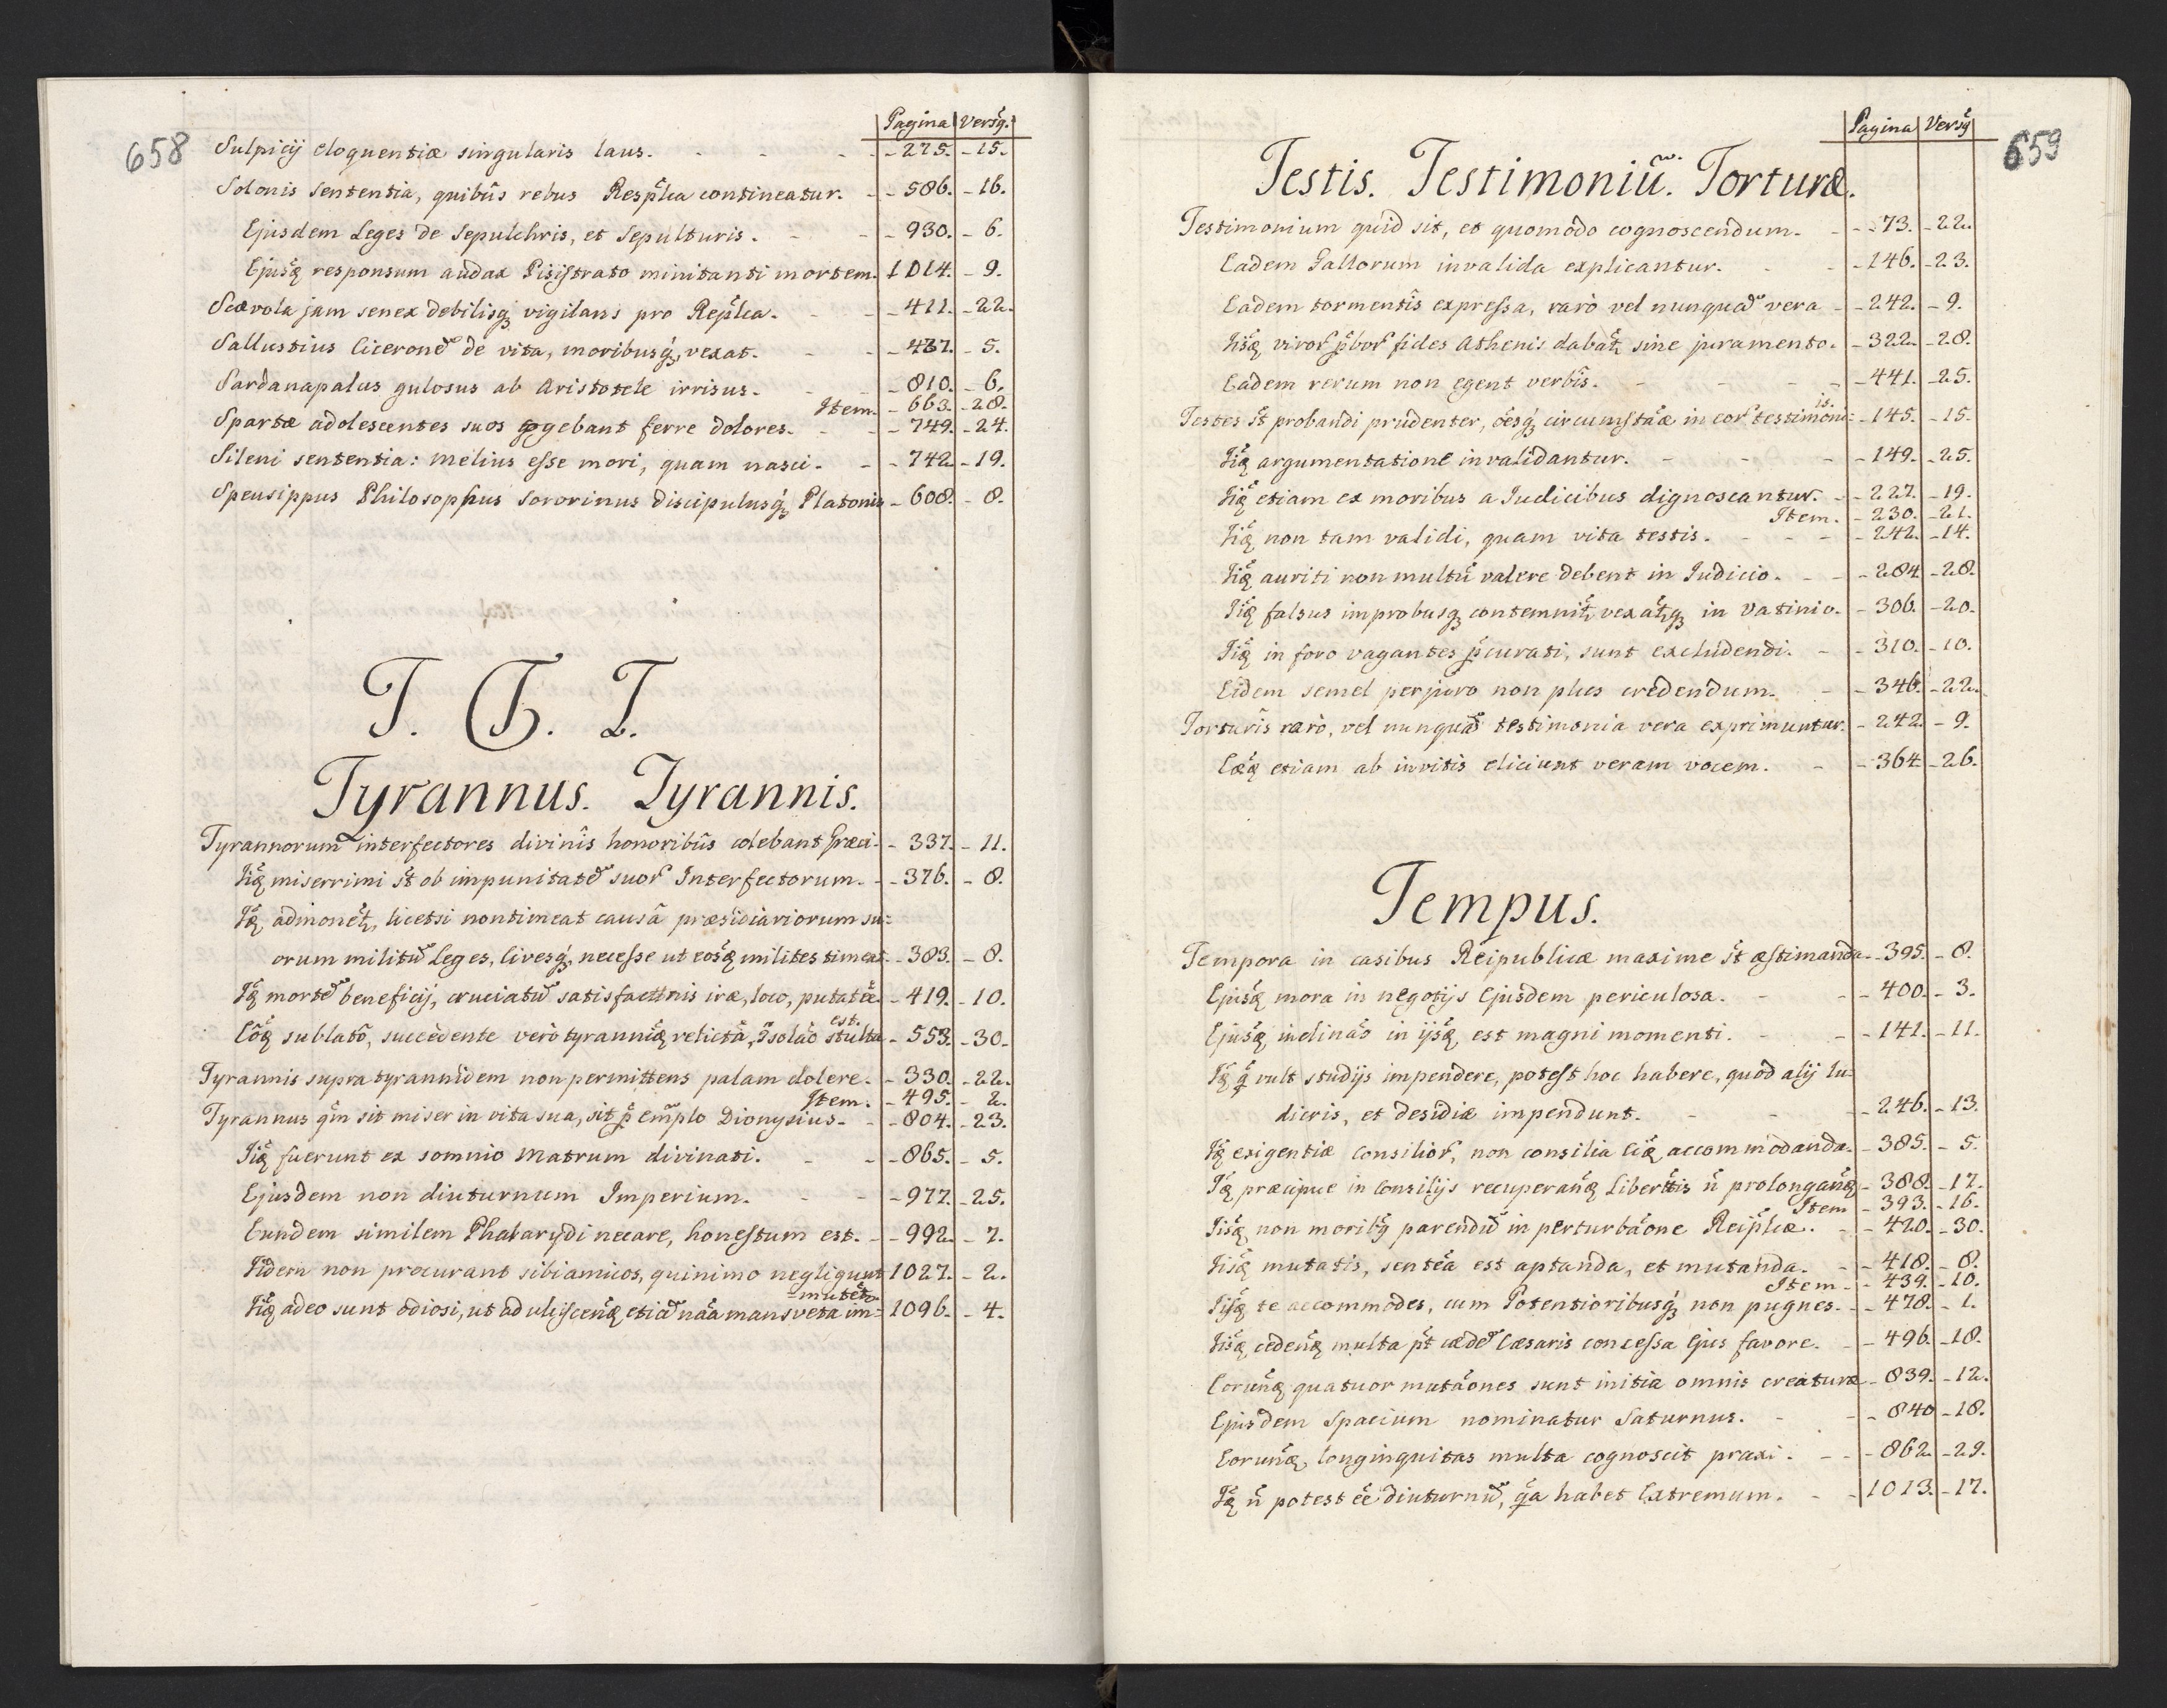 658
Pagina Versq̃.
Sulpicij eloquentiæ singularis laus. - - - - 275. - 15.
Solonis sententia, quibus rebus Resp̃lca contineatur. - 586. - 16.
Ejusdem Leges de Sepulchris, et Sepulturis. - - 930. - 6.
Ejusq̃ responsum audax Pisistrato minitanti mortem. 1014. - 9.
Scævola jam senex debilisq; vigilans pro Rep̃lca. - - 411. - 22.
Sallustius Ciceronē de vita, moribusq;, vexat. - - 437. - 5.
Sardanapalus gulosus ab Aristotele irrisus. - - 810. - 6.
Item. - 663. - 28.
Spartæ adolescentes suos cogebant ferre dolores. - - 749. - 24.
Sileni sententia: melius esse mori, quam nasci. - - 742. - 19.
Speusippus Philosophus Sororinus discipulusq; Platonis - 608. - 8.
T. T. T.
Tyrannus. Tyrannis.
Tyrannorum interfectores divinis honoribus colebant Græci. - 337. - 11.
Iiq̃ miserrimi s̃t ob impunitatē suor̃ Interfectorum. - 376. - 8.
Iq̃ admonet̃, licetsi non timeat causâ præsidiariorum su=
orum militū Leges, Civesq;, necesse ut eosq̃ milites timeat. - 383. - 8.
Iq̃ mortē beneficij, cruciatū satisfact̃nis iræ, loco, putat ẽe. - 419. - 10.
est.
Eôq̃ sublatô, succedente verò tyranniq̃ relictâ, c̃solão stulta - 553. - 30.
Tyrannis supra tyrannidem non permittens palam dolere. - 330. - 22.
Item. - 495. - 2.
Tyrannus qm̃ sit miser in vita sua, sit p̃ exm̃plo Dionysius. - 804. - 23.
Iiq̃ fuerunt ex somnio Matrum divinati. - - 865. - 5.
Ejusdem non diuturnum Imperium. - - 977. - 25.
Eundem similem Phalarydi necare, honestum est. - 992. - 7.
Iidem non procurant sibi amicos, quinimo negligunt 1027. - 2.
=mutet̃.
Iiq̃ adeo sunt odiosi, ut ad ulciscenq̃ etiā nãa mansveta im= 1096. - 4.
659
Pagina Versq̃
Testis. Testimoniū. Torturæ.
Testimonium quid sit, et quomodo cognoscendum. - - 73. - 22.
Eadem Gallorum invalida explicantur. - - 146. - 23.
Eadem tormentis expressa, rarò vel nunquā vera - 242. - 9.
Iisq̃ viror̃ p̃bor̃ fides Athenis dabat̃ sine juramento. - 322. - 28.
Eadem rerum non egent verbis. - - - - 441. - 25.
is.
Testes s̃t probandi prudenter, oẽsq; circumstãæ in eor̃ testimoni= - 145. - 15.
Iiq̃ argumentatione invalidantur. - - - 149. - 25.
Iiq̃ etiam ex moribus a Judicibus dignoscantur. - 227. - 19.
Item. - 230. - 21.
Iiq̃ non tam validi, quam vita testis. - - - 242. - 14.
Iiq̃ auriti non multū valere debent in Judicio. - - 284. - 28.
Iiq̃ falsus improbusq; contemnit̃, vexat̃q; in Vatinio. - 306. - 20.
Iiq̃ in foro vagantes p̃curati, sunt excludendi. - - 310. - 10.
Eidem semel perjuro non plus credendum. - - 346. - 22.
Torturis rarò, vel nunquā testimonia vera exprimuntur. - 242. - 9.
Eæq̃ etiam ab invitis eliciunt veram vocem. - - 364. - 26.
Tempus.
Tempora in casibus Reipublicæ maxime s̃t æstimanda. - 395. - 8.
Ejusq̃ mora in negotijs Ejusdem periculosa. - - 400. - 3.
Ejusq̃ inclinão in ijsq̃ est magni momenti. - - 141. - 11.
Iq̃ q̃ vult studijs impendere, potest hoc habere, quod alij lu=
dicris, et desidiæ impendunt. - - - 246. - 13.
Iq̃ exigentiæ Consilior̃, non consilia Eiq̃ accommodanda. - 385. - 5.
Iq̃ præcipue in Consilijs recuperanq̃ Libert̃tis ñ prolonganq̃ - 388. - 17.
Item - 393. - 16.
Iisq̃ non moribq̃ parendū in perturbãone Reip̃lcæ. - 420. - 30.
Iisq̃ mutatis, sentẽa est aptanda, et mutanda. - 418. - 8.
Item - 439. - 10.
Iisq̃ te accommodes, cum Potentioribusq; non pugnes. - 478. - 1.
Iisq̃ cedenq̃ multa p̃t cædē Cæsaris concessa Ejus favore. - 496. - 18.
Eorunq̃ quatuor mutãones sunt initia omnis creaturæ - 839. - 12.
Ejusdem Spacium nominatur Saturnus. - - 840 - 18.
Eorunq̃ longinquitas multa cognoscit praxi. - - 862. - 29.
Iq̃ ñ potest ẽe diuturnū, q̃a habet Extremum. - - 1013. - 17.